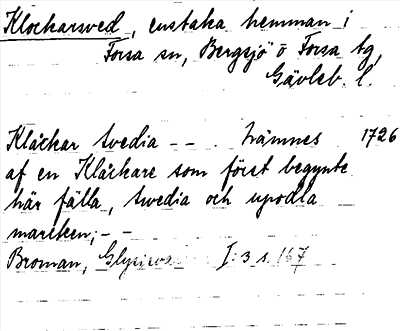 Klockarsved, enstaka hemman i
Forsa sn, Bergsjö o Forsa tg,
Gävleb. l.
Klåckar swedia - - . nämnes 1726
af en Klåckare som först begynte
här fälla, swedia och updla
marcken; - -
Broman, Glysisvallur I: 3 s. 167